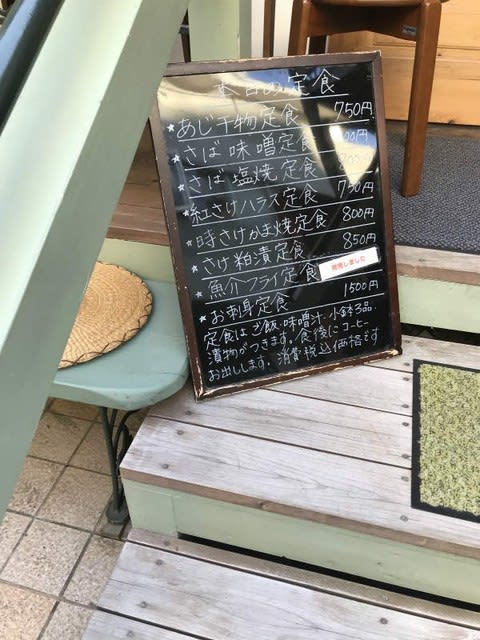 本日の定食
★あじ干物定食 750円
★さば味噌定食 00円
★さば塩焼定食
★紅さけハラス定食 750円
★時さけかま焼定食 800円
★さけ粕漬定食 850円
★魚介フライ定食 完売しました
★お刺身定食 1500円
定食はご飯、味噌汁、小鉢3品、
漬物がつきます。食後にコーヒー
お出しします。消費税込価格です